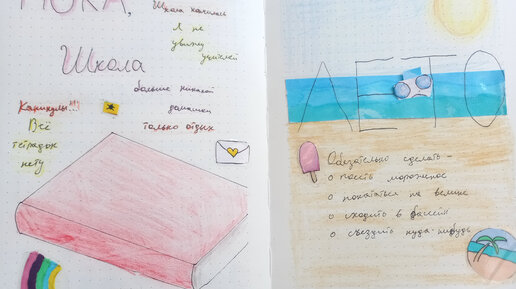 ПОКА,
Школа
Школа кончилась
Я не
увижу
учителей
больше никакой
домашки
только отдых
Каникулы!!!
Всё
тетрадок
нету
ЛЕТО
Обязательно сделать -
о поесть мороженое
о покататься на велике
о сходить в бассейн
о съездить куда-нибудь